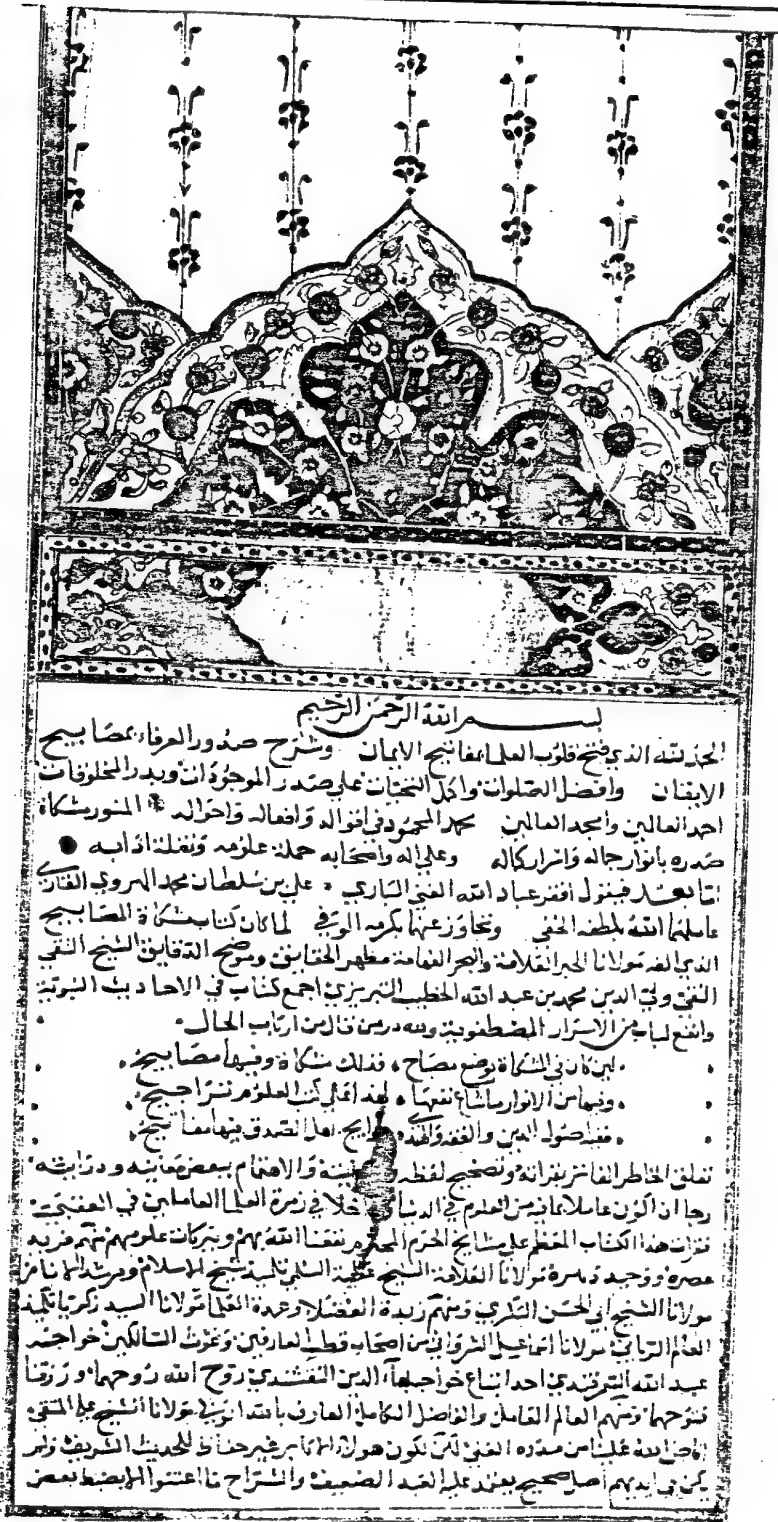 بسم الله الرحمن الرحيم
الحمد لله الذي فتح قلوب العلماء بمفاتيح الايمان وشرح صدور العرفاء بمصابيح
الايقان وافضل الصلوات واكمل التحيات على صدر الموجودات وبدر المخلوقات
احمد العالمين وامجد العالمين محمد المحمود في اقواله وافعاله واحواله المنور مشكاة
صدره بانوار جماله واسرار كماله وعلى اله واصحابه حملة علومه ونقلة ادابه
اما بعد فيقول افقر عباد الله الغني الباري علي بن سلطان محمد الهروي القاري
عاملهما الله بلطفه الخفي وتجاوز عنهما بكرمه الوفي لما كان كتاب مشكاة المصابيح
الذي الفه مولانا الحبر العلامة والبحر الفهامة مظهر الحقايق وموضح الدقايق الشيخ التقي
النقي ولي الدين محمد بن عبد الله الخطيب التبريزي اجمع كتاب في الاحاديث النبوية
وانفع لباب من الاسرار المصطفوية ولله در من قال من ارباب الحال
لين كان في المشكاة يوضع مصباح فذلك مشكاة وفيها مصابيح
وفيها من الانوار ما شاع نفعها لهذا على كتب العلوم تراجيح
ففيه اصول الدين والفقه والهدى حوايج اهل الصدق منها مفاتيح
تعلق الخاطر الفاتر بقرانه وتصحيح لفظه والاهتمام ببعض معانيه ودرايته
رجا ان اكون عاملا بما فيه من العلوم في الدنيا داخلا في زمرة العلما العاملين في العقبى
فقرات هذا الكتاب المعظم على مشايخ الحرم المحترم نفعنا الله بهم وببركات علومهم منهم فريد
عصره ووحيد دهره مولانا العلامة الشيخ عطية السلمي تلميذ شيخ الاسلام ومرشد الانام
مولانا الشيخ ابي الحسن البكري ومنهم زبدة الفضلا وعمدة العلما مولانا السيد زكريا تلميذ
العالم الرباني مولانا اسماعيل الشرواني من اصحاب قطب العارفين وغوث السالكين خواجه
عبيد الله السمرقندي احد اتباع خواجه بهاء الدين النقشبندي روح الله روحهما ورزقنا
فتوحهما ومنهم العالم العامل والفاضل الكامل العارف بالله مولانا الشيخ علي المتقي
افاض الله علينا من مدده العلي لكن لكون هولاء الاكابر غير حفاظ للحديث الشريف ولم
يكن في ايديهم اصل صحيح يعتمد عليه العبد الضعيف والشراح ما اعتنوا الا بضبط بعض